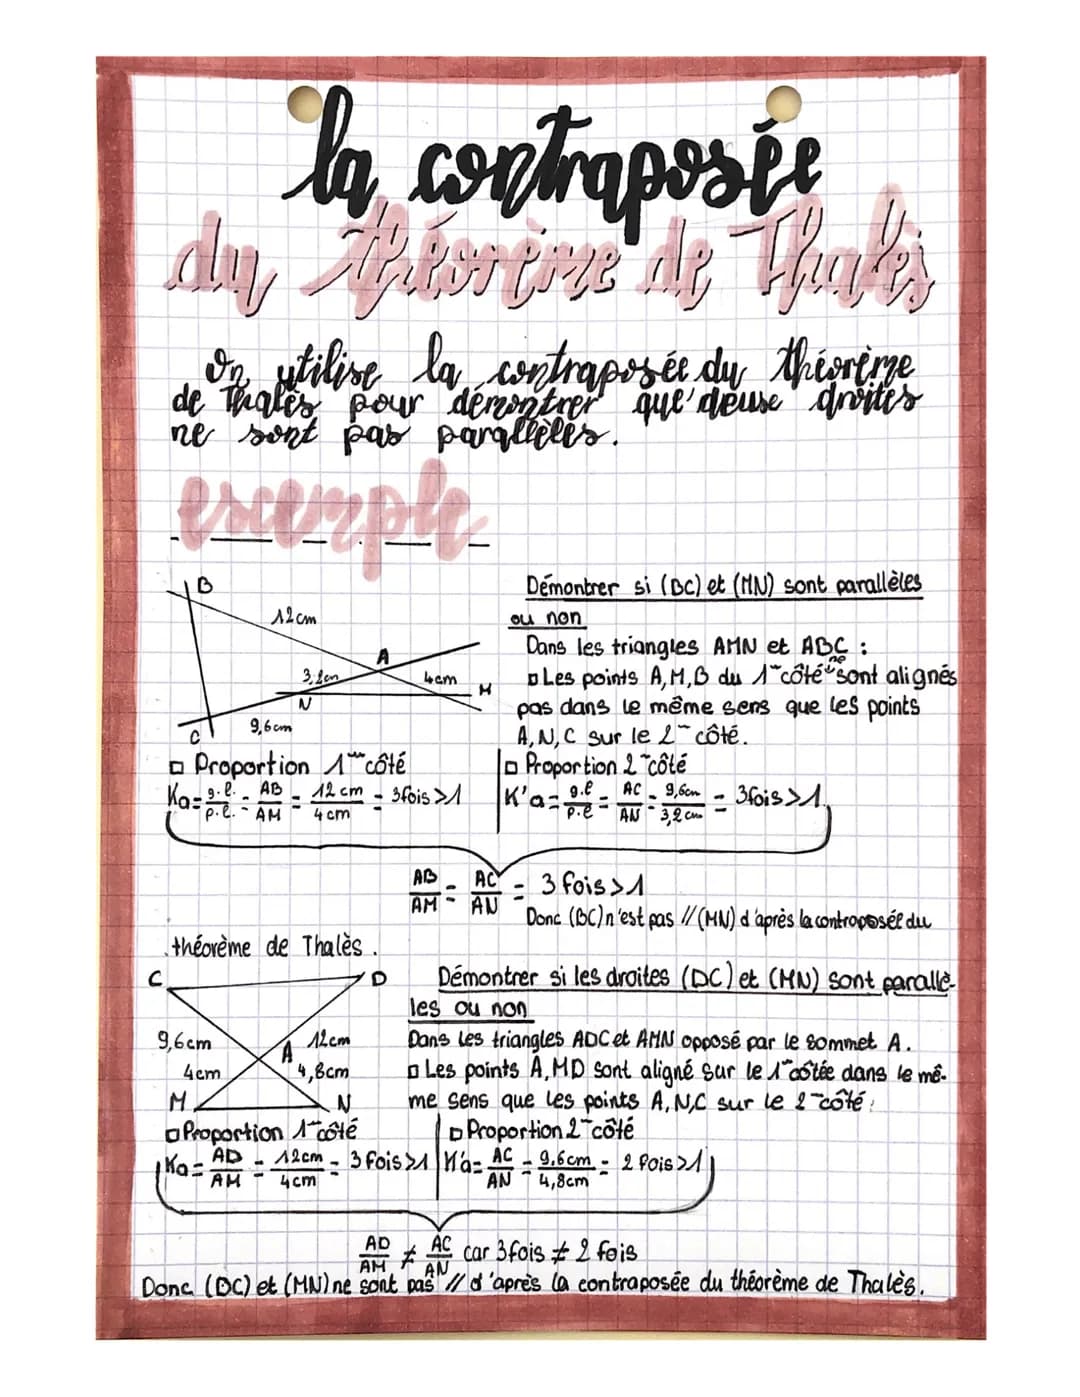 la contraposée
du théorème de Thalès
On utilise la contraposée du théorème
de Thalès pour démontrer que deux droites
ne sont pas parallèles.
exemple
B
12cm
A
3,2cm
4cm
M
N
C
9,6cm
Démontrer si (BC) et (MN) sont parallèles
ou non
Dans les triangles AMN et ABC :
▫ Les points A, M, B du 1er côté ne sont alignés
pas dans le même sens que les points
A, N, C sur le 2e côté.
▫ Proportion 1er côté
Ka = g.l./p.l. = AB/AM = 12 cm/4 cm = 3fois > 1
▫ Proportion 2e côté
K'a = g.l/p.l = AC/AN = 9,6cm/3,2 cm = 3fois > 1
AB/AM = AC/AN = 3 fois > 1
Donc (BC) n'est pas // (MN) d'après la contraposée du
théorème de Thalès.
C
D
9,6cm
12cm
A
4cm
4,8cm
M
N
Démontrer si les droites (DC) et (MN) sont parallè-
les ou non
Dans les triangles ADC et AMN opposé par le sommet A.
▫ Les points A, MD sont aligné sur le 1er côtée dans le mê-
me sens que les points A, N, C sur le 2e côté.
▫ Proportion 1er côté
Ka = AD/AM = 12cm/4cm = 3 fois > 1
▫ Proportion 2e côté
K'a = AC/AN = 9.6cm/4,8cm = 2 fois > 1
AD/AM ≠ AC/AN car 3 fois ≠ 2 fois
Donc (DC) et (MN) ne sont pas // d'après la contraposée du théorème de Thalès.